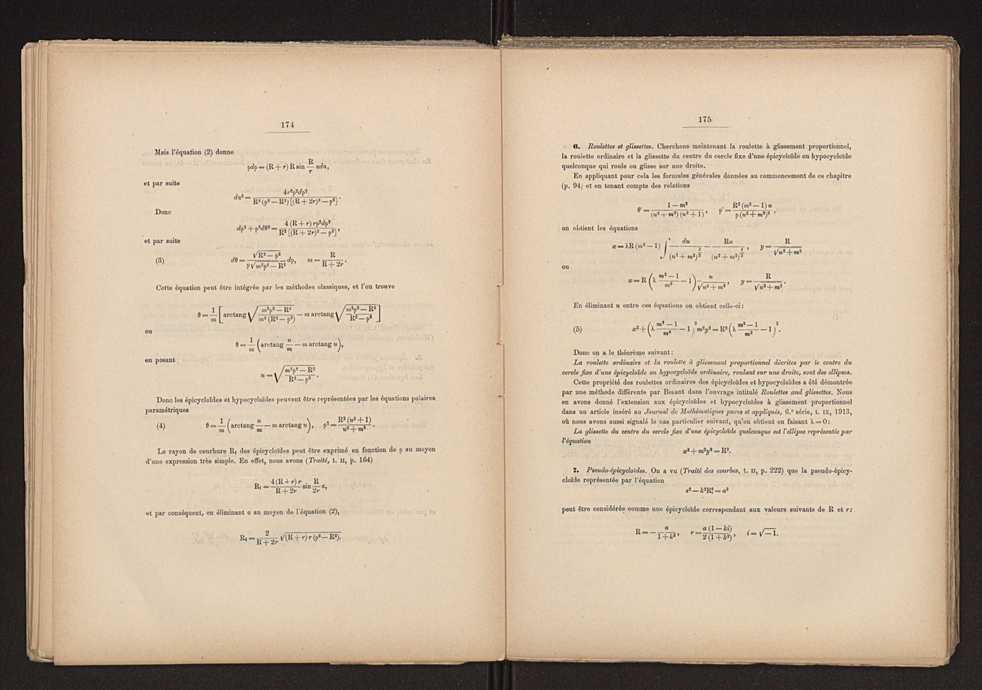 174
Mais l'équation (2) donne
ρdρ = (R + r) R sin R/r udu,
et par suite
du² = 4r²ρ²dρ² / R²(ρ² — R²)[(R + 2r)² — ρ²].
Donc
dρ² + ρ²dθ² = 4(R + r)rρ²dρ² / R²[(R + 2r)² — ρ²],
et par suite
(3) dθ = √R² — ρ² / ρ√m²ρ² — R² dρ, m = R / R + 2r.
Cette équation peut être intégrée par les méthodes classiques, et l'on trouve
θ = 1/m [arctang √m²ρ² — R² / m²(R² — ρ²) — m arctang √m²ρ² — R² / R² — ρ²]
ou
θ = 1/m (arctang u/m — m arctang u),
en posant
u = √m²ρ² — R² / R² — ρ².
Donc les épicycloïdes et hypocycloïdes peuvent être représentées par les équations polaires
paramétriques
(4) θ = 1/m (arctang u/m — m arctang u), ρ² = R²(u² + 1) / u² + m².
Le rayon de courbure R₁ des épicycloïdes peut être exprimé en fonction de ρ au moyen
d'une expression très simple. En effet, nous avons (Traité, t. II, p. 164)
R₁ = 4(R + r)r / R + 2r sin R/2r
et par conséquent, en éliminant
au moyen de l'équation (2),
R₁ = 2 / R + 2r √(R + r) r (ρ² — R²).
175
6. Roulettes et glissettes. Cherchons maintenant la roulette à glissement proportionnel,
la roulette ordinaire et la glissette du centre du cercle fixe d'une épicycloïde ou hypocycloïde
quelconque qui roule ou glisse sur une droite.
En appliquant pour cela les formules générales données au commencement de ce chapitre
(p. 94) et en tenant compte des relations
θ' = 1 — m² / (u² + m²)(u² + 1), ρ' = R²(m² — 1)u / ρ(u² + m²)²,
on obtient les équations
x = λR(m² — 1) ∫ du / (u² + m²)^3/2 — Ru / (u² + m²)^1/2, y = R / √u² + m²
ou
x = R (λ m² — 1 / m² — 1) u / √u² + m², y = R / √u² + m².
En éliminant u entre ces équations on obtient celle-ci:
(5) x² + (λ m² — 1 / m² — 1)² m²y² = R² (λ m² — 1 / m² — 1)².
Donc on a le théorème suivant:
La roulette ordinaire et la roulette à glissement proportionnel décrites par le centre du
cercle fixe d'une épicycloïde ou hypocycloïde ordinaire, roulant sur une droite, sont des ellipses.
Cette propriété des roulettes ordinaires des épicycloïdes et hypocycloïdes a été démontrée
par une méthode différente par Besant dans l'ouvrage intitulé Roulettes and glissettes. Nous
en avons donné l'extension aux épicycloïdes et hypocycloïdes à glissement proportionnel
dans un article inséré au Journal de Mathématiques pures et appliqués, 6.e série, t. IX, 1913,
où nous avons aussi signalé le cas particulier suivant, qu'on obtient en faisant λ = 0:
La glissette du centre du cercle fixe d'une épicycloïde quelconque est l'ellipse représentée par
l'équation
x² + m²y² = R².
7. Pseudo-épicycloïdes. On a vu (Traité des courbes, t. II, p. 222) que la pseudo-épicy-
cloïde représentée par l'équation
s² — k²R₁² = a²
peut être considérée comme une épicycloïde correspondant aux valeurs suivante de R et r:
R = — a / 1 + k², r = a(1 — ki) / 2(1 + k²), i = √—1.